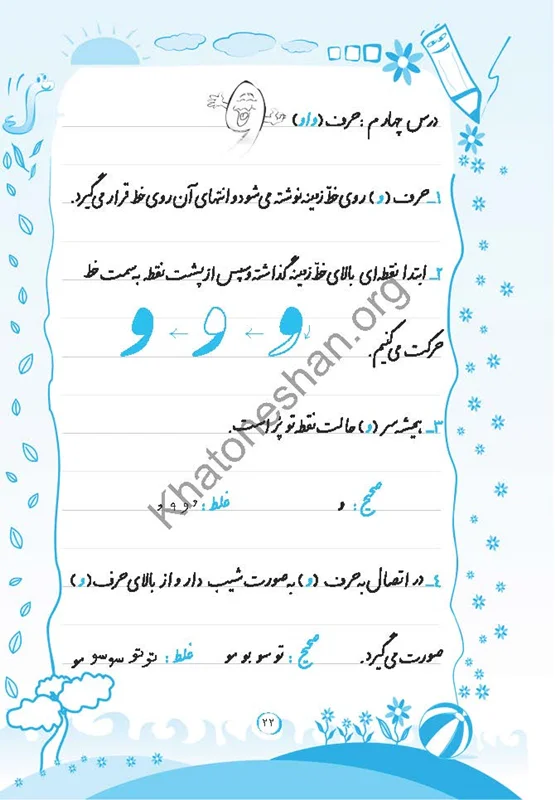 درس چهارم : حرف (واو)
۱ـ حرف (و) روی خطّ زمینه نوشته می شود و انتهای آن روی خط قرار می گیرد.
۲ـ ابتدا نقطه ای بالای خطّ زمینه گذاشته و سپس از پشت نقطه به سمت خط
حرکت می کنیم. و ← و ← و
۳ـ همیشه سر (و) حالت نقطه تو پُر است.
صحیح : و غلط : و و و و
۴ـ در اتصال به حرف (و) به صورت شیب دار و از بالای حرف (و)
صورت می گیرد. صحیح : تو سو بو مو غلط : تو تو سو سو مو
۲۲
Khatoneshan.org